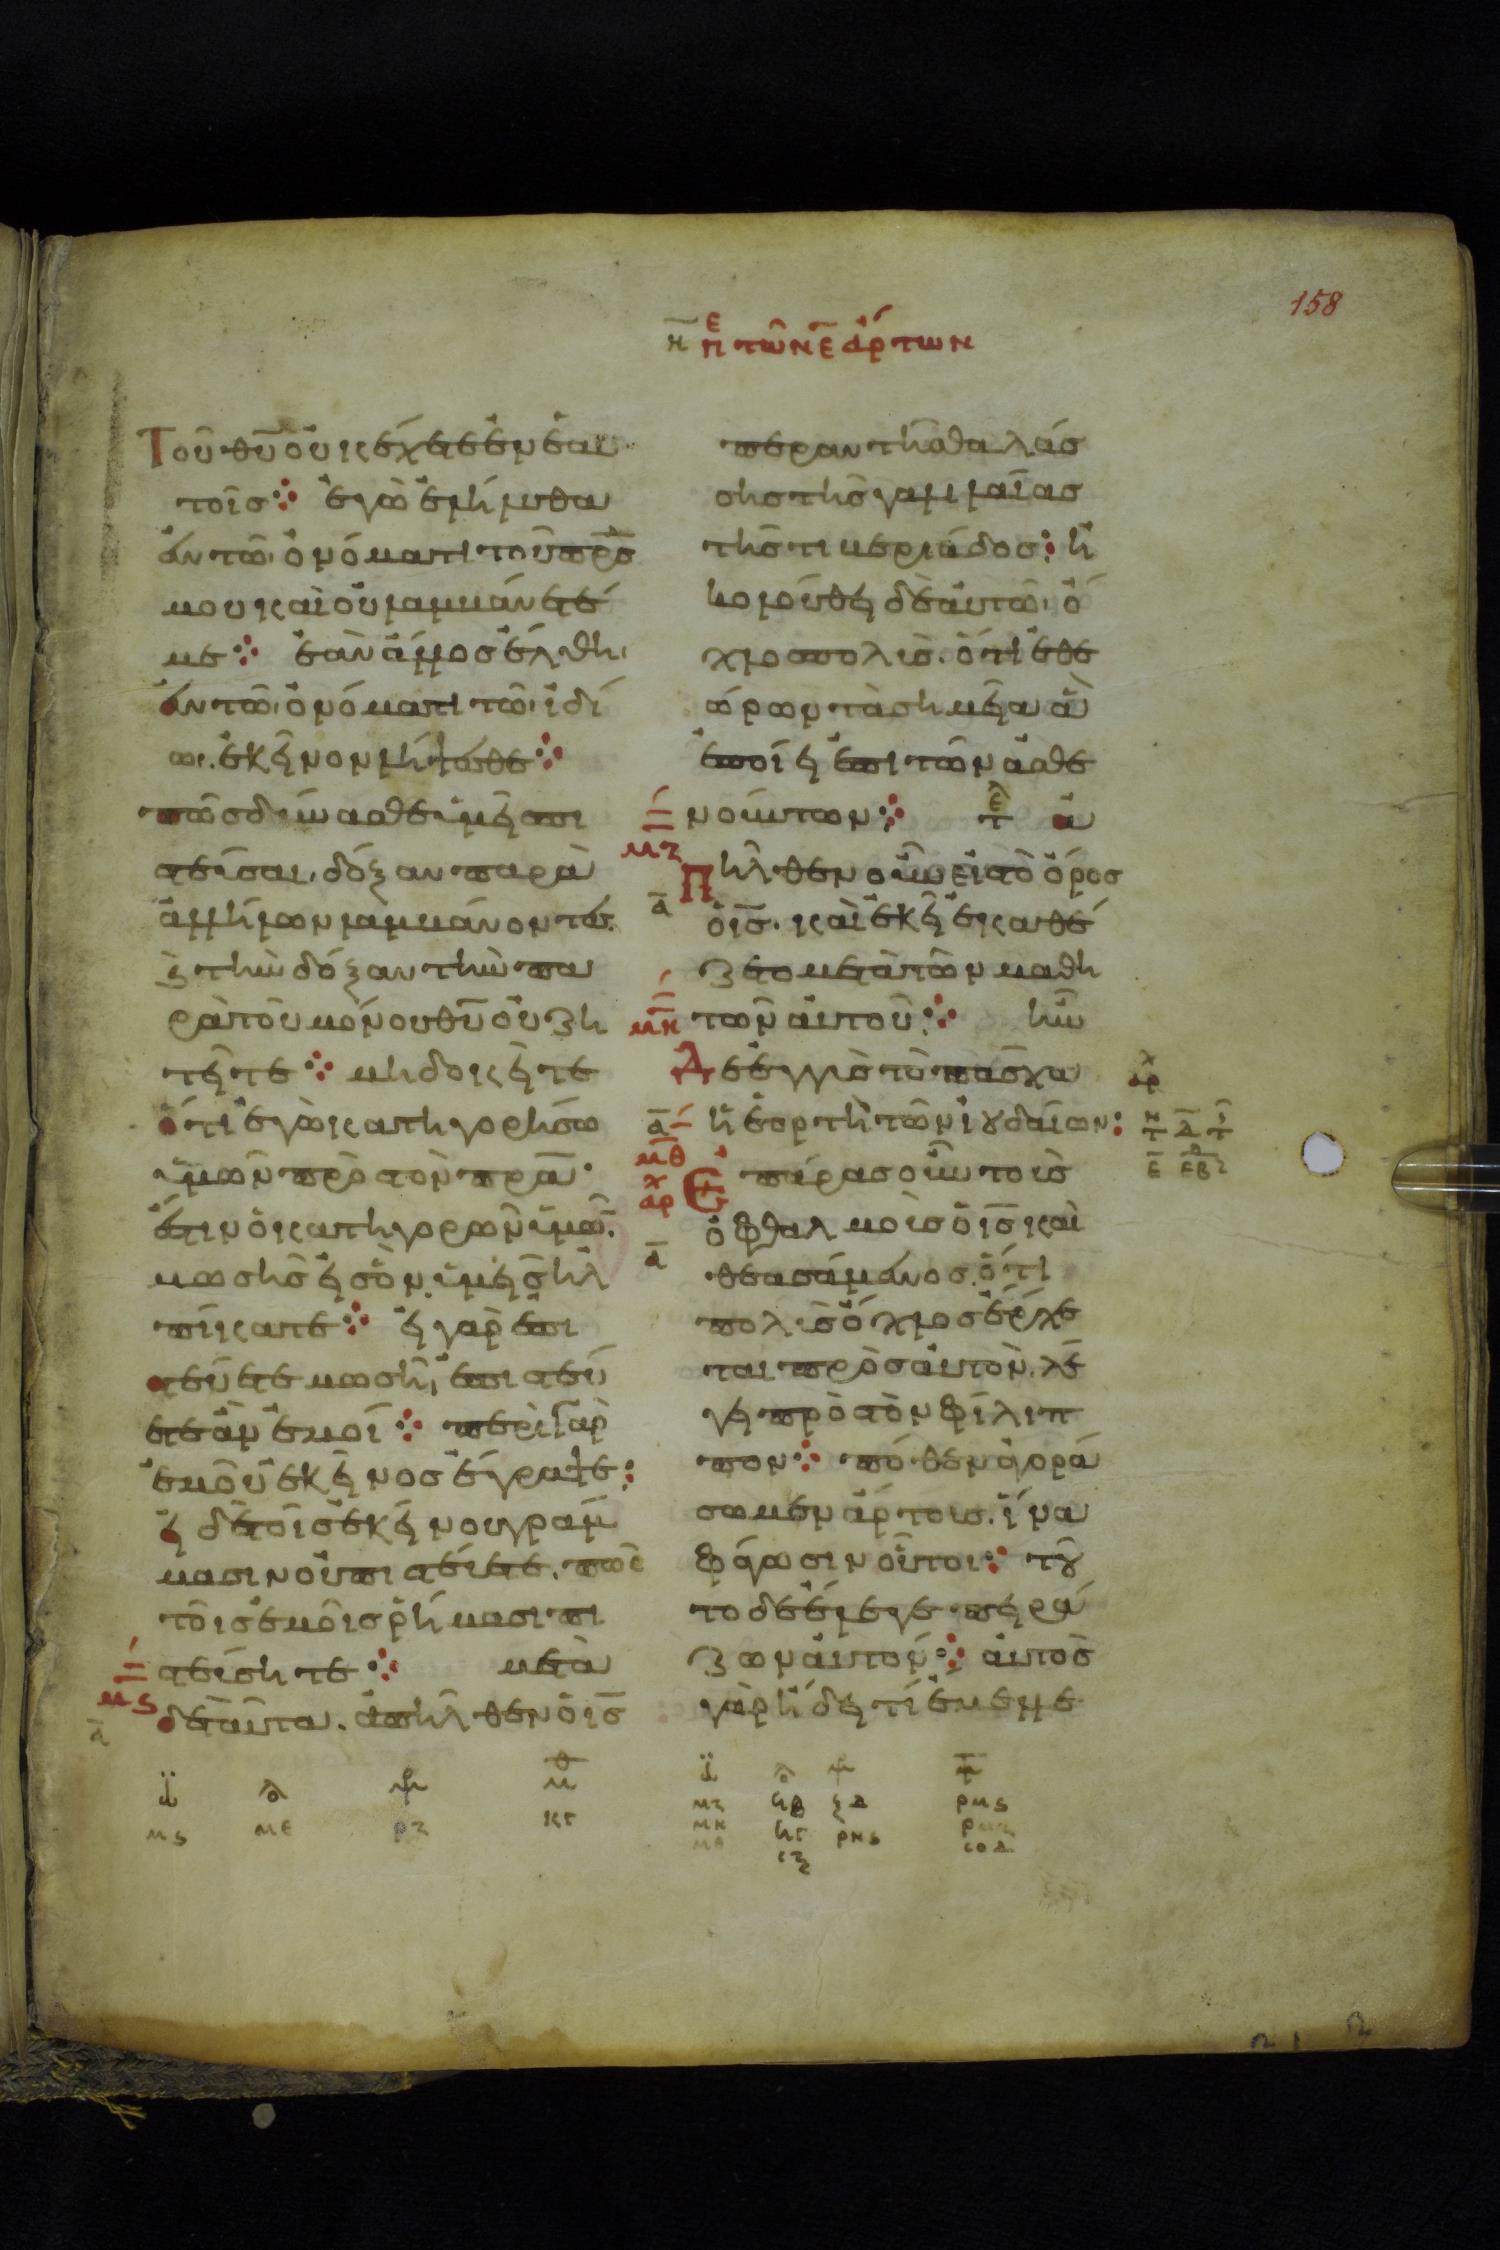 158
η̅ πε τῶν ε̅ ἄρτων
Τοῦ θ̅υ̅ οὐκ ἔχετε ἐν ἑαυ
τοῖς ⁘ ἐγὼ ἐλήλυθα
ἐν τῶι ὀνόματι τοῦ π̅ρ̅ς̅
μου καὶ οὐ λαμβάνετέ
με ⁘ ἐὰν ἄλλος ἔλθηι
ἐν τῶι ὀνόματι τῶι ἰδί
ωι. ἐκεῖνον λήψεσθε ⁘
πῶς δύνασθε ὑμεῖς πι
στεῦσαι, δόξαν παρὰ
ἀλλήλων λαμβάνοντες.
καὶ τὴν δόξαν τὴν πα
ρὰ τοῦ μόνου θ̅υ̅ οὐ ζη
τεῖτε ⁘ μὴ δοκεῖτε
ὅτι ἐγὼ κατηγορήσω
ὑμῶν πρὸς τὸν π̅ρ̅α̅·
ἔστιν ὁ κατηγορῶν ὑμῶν.
μωσῆς εἰς ὃν ὑμεῖς ἠλ
πίκατε ⁘ εἰ γὰρ ἐπι
στεύετε μωσῆι, ἐπιστεύ
ετε ἂν ἐμοί ⁘ περὶ γὰρ
ἐμοῦ ἐκεῖνος ἔγραψε:
εἰ δὲ τοῖς ἐκείνου γράμ
μασιν οὐ πιστεύετε. πῶς
τοῖς ἐμοῖς ῥήμασι πι
στεύσητε ⁘ μετὰ
μ̅ς̅
α̅ δὲ ταῦτα. ἀπῆλθεν ὁ ι̅ς̅
πέραν τῆς θαλάσ
σης τῆς γαλιλαίας
τῆς τιβεριάδος: ἠ
κολούθει δὲ αὐτῶι ὁ
χλος πολύς. ὅτι ἐθε
ώρουν τὰ σημεῖα ἃ
ἐποίει ἐπὶ τῶν ἀσθε
νούντων ⁘ τε̅λ ἀ
μζ
νῆλθεν οὖν εἰς τὸ ὄρος
α̅ ὁ ι̅ς̅. καὶ ἐκεῖ ἐκαθέ
ζετο μετὰ τῶν μαθη
μη τῶν αὐτοῦ ⁘ ἦν
Δὲ ἐγγὺς τὸ πάσχα
α̅ ἡ ἑορτὴ τῶν ἰουδαίων:
μθ
αρχ Ἐπάρας οὖν τοὺς
ὀφθαλμοὺς ὁ ι̅ς̅ καὶ
α̅ θεασάμενος. ὅτι
πολὺς ὄχλος ἔρχε
ται πρὸς αὐτὸν. λέ
γει πρὸς τὸν φίλιπ
πον ⁘ πόθεν ἀγορά
σωμεν ἄρτους. ἵνα
φάγωσιν οὗτοι ⁘ τοῦ
το δὲ ἔλεγε πειρά
ζων αὐτόν ⁘ αὐτὸς
γὰρ ἤδει τί ἔμελλε
μς με ρζ κγ
μζ
μη
μθ
ρμς